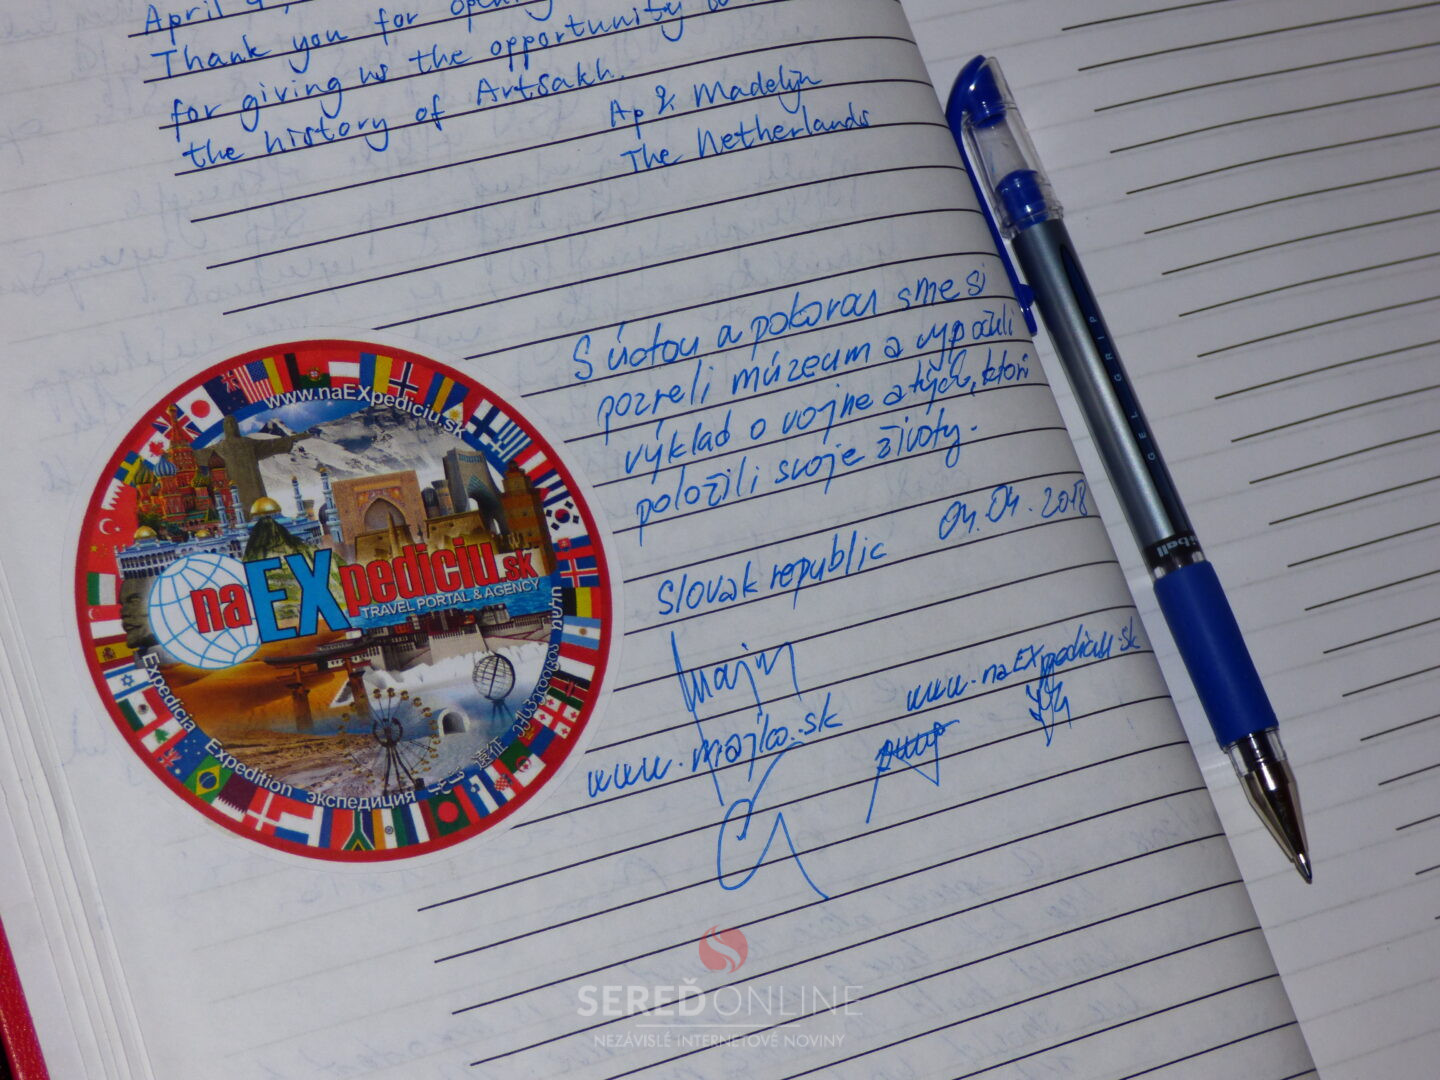 April 9,
Thank you for
for giving us the opportunity
the history of Artsakh.
Ap & Madelijn
The Netherlands
S úctou a pokorou sme si
pozreli múzeum a vypočuli
výklad o vojne a tých, ktorí
položili svoje životy.
Slovak republic 04.04.2018
www.majko.sk
www.naEXpediciu.sk
www.naEXpediciu.sk
naEXpediciu.sk
TRAVEL PORTAL & AGENCY
Expedícia Expedition экспедиция 遠征 ექსპედიცია
GEL GRIP
uniball
SEREĎONLINE
NEZÁVISLÉ INTERNETOVÉ NOVINY